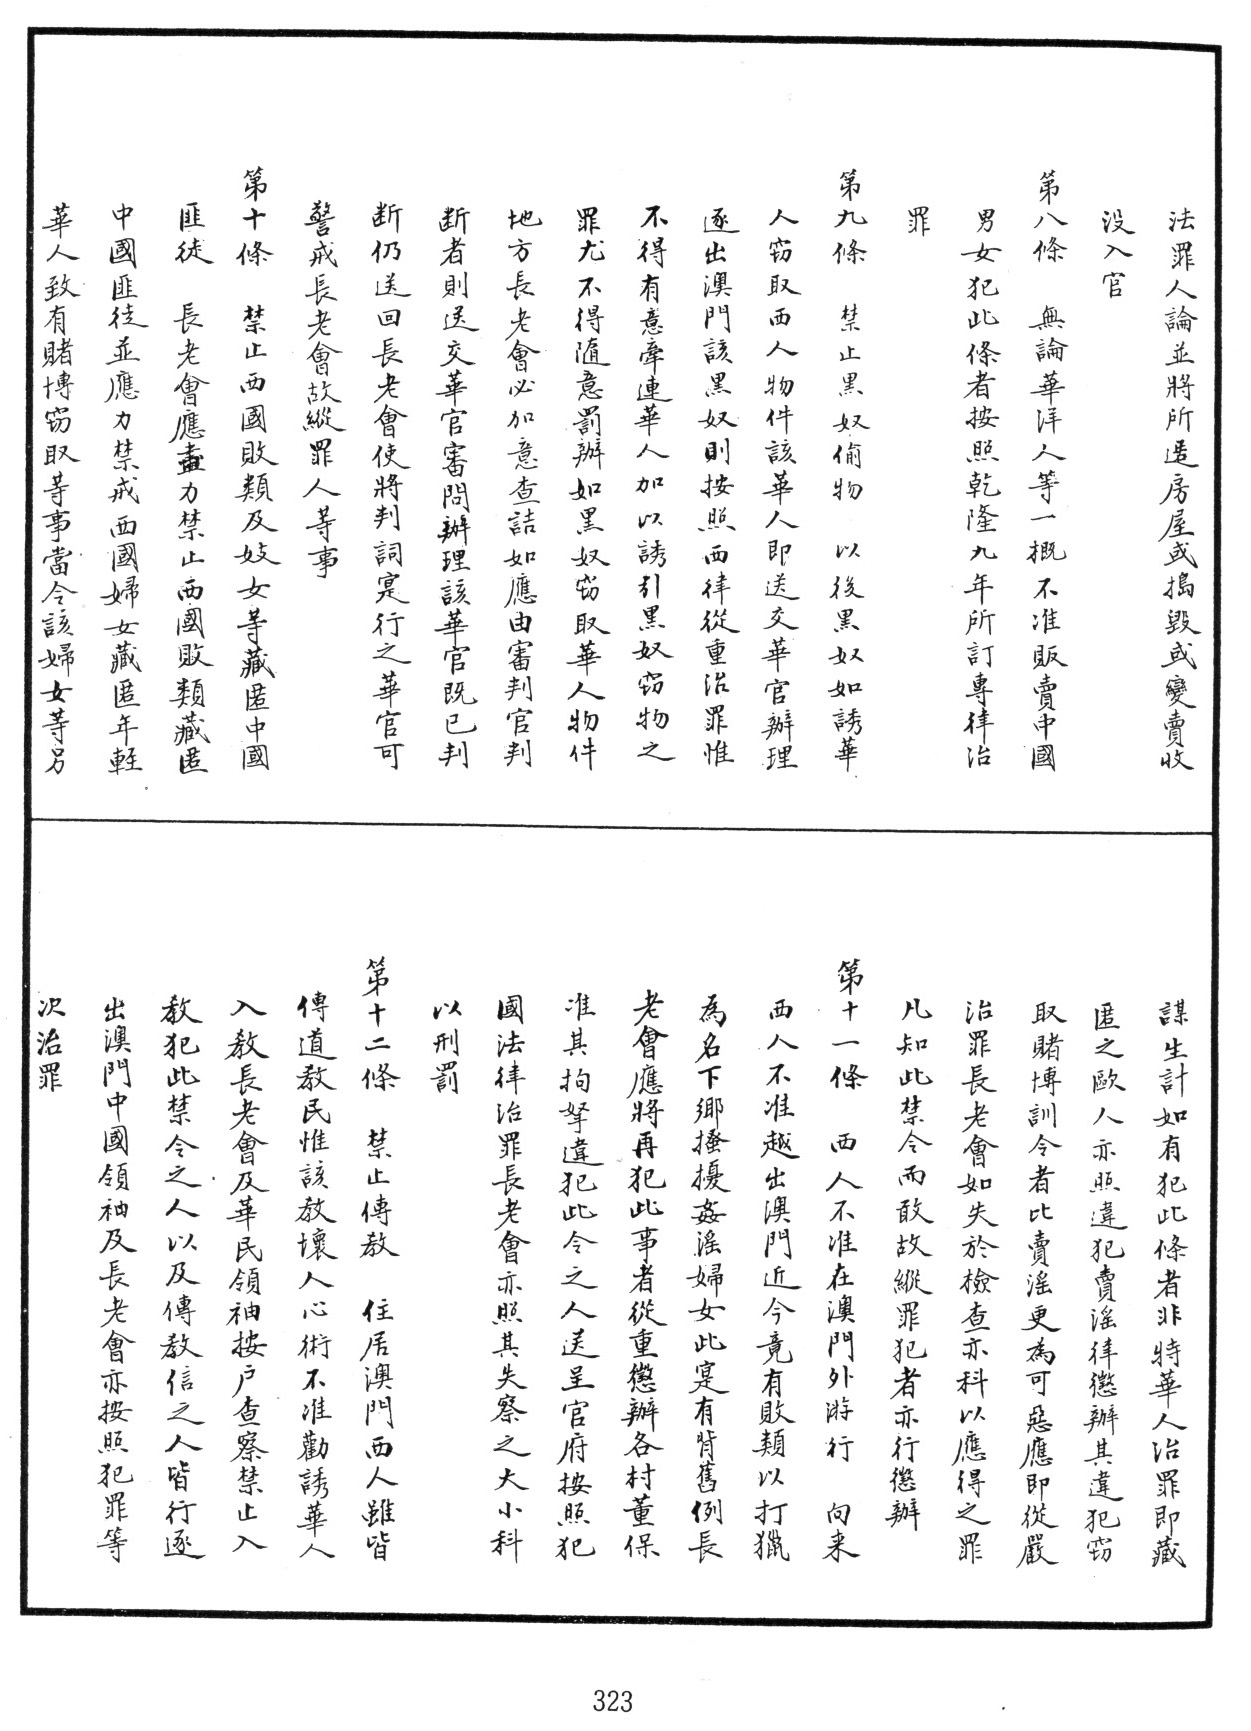 法罪人論並將所造房屋或搗毀或變賣收
沒入官
第八條　無論華洋人等一概不准販賣中國
男女犯此條者按照乾隆九年所訂專律治
罪
第九條　禁止黑奴偷物　以後黑奴如誘華
人窃取西人物件該華人即送交華官辦理
逐出澳門該黑奴則按照西律從重治罪惟
不得有意牽連華人加以誘引黑奴窃物之
罪尤不得隨意罰辦如黑奴窃取華人物件
地方長老會必加意查詰如應由審判官判
断者則送交華官審問辦理該華官既已判
断仍送回長老會使將判詞寔行之華官可
警戒長老會故縱罪人等事
第十條　禁止西國敗類及妓女等藏匿中國
匪徒　長老會應盡力禁止西國敗類藏匿
中國匪徒並應力禁戒西國婦女藏匿年輕
華人致有賭博窃取等事當令該婦女等另
謀生計如有犯此條者非特華人治罪即藏
匿之歐人亦照違犯賣淫律懲辦其違犯窃
取賭博訓令者比賣淫更為可惡應即從嚴
治罪長老會如失於檢查亦科以應得之罪
凡知此禁令而敢故縱罪犯者亦行懲辦
第十一條　西人不准在澳門外游行　向来
西人不准越出澳門近今竟有敗類以打獵
為名下鄉搔擾姦淫婦女此寔有背舊例長
老會應將再犯此事者從重懲辦各村董保
准其拘拏違犯此令之人送呈官府按照犯
國法律治罪長老會亦照其失察之大小科
以刑罰
第十二條　禁止傳教　住居澳門西人雖皆
傳道教民惟該教壞人心術不准勸誘華人
入教長老會及華民領袖按户查察禁止入
教犯此禁令之人以及傳教信之人皆行逐
出澳門中國領袖及長老會亦按照犯罪等
次治罪
323